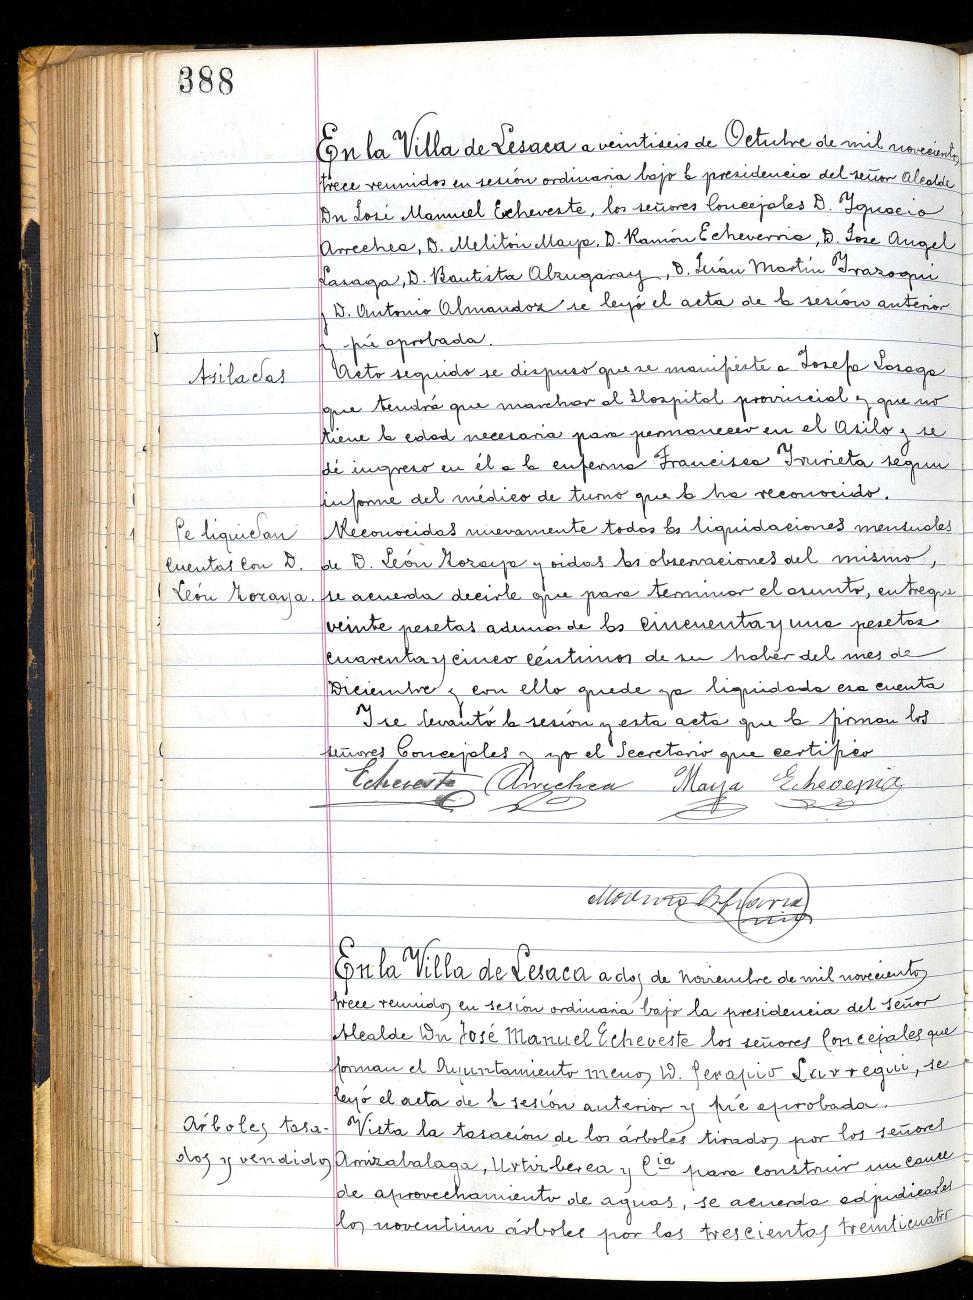 388
En la Villa de Lesaca a veintiseis de Octubre de mil novecientos
trece reunidos en sesión ordinaria bajo la presidencia del señor Alcalde
Dn José Manuel Echeveste, los señores Concejales D. Ygnacio
Arrechea, D. Melitón Maya, D. Ramón Echeverria, D. Jose Angel
Lasaga, D. Bautista Alzugaray, D. Juán Martín Yrazoqui
y D. Antonio Almandoz se leyó el acta de la sesión anterior
y fué aprobada.
Asiladas
Acto seguido se dispuso que se manifieste a Josefa Lasaga
que tendrá que marchar al Hospital provincial y que no
tiene la edad necesaria para permanecer en el Asilo y se
dé ingreso en él a la enferma Francisca Yrurieta segun
informe del médico de turno que la ha reconocido.
Se liquidan
cuentas con D.
León Zozaya.
Reconocidas nuevamente todas las liquidaciones mensuales
de D. León Zozaya y oidas las observaciones del mismo,
se acuerda decirle que para terminar el asunto, entregue
veinte pesetas ademas de las cincuenta y una pesetas
cuarenta y cinco céntimos de su haber del mes de
Diciembre y con ello quede ya liquidada esa cuenta
Y se levantó la sesión y esta acta que la firman los
señores Concejales y yo el Secretario que certifico
Echeveste Arrechea Maya Echeverria
En la Villa de Lesaca a dos de noviembre de mil novecientos
trece reunidos en sesión ordinaria bajo la presidencia del señor
Alcalde Dn José Manuel Echeveste los señores Concejales que
forman el Ayuntamiento menos D. Serapio Larregui, se
leyó el acta de la sesión anterior y fué aprobada.
Arboles tasa-
dos y vendidos
Vista la tasación de los árboles tirados por los señores
Arrizabalaga, Urtizberea y Cia para construir un cauce
de aprovechamiento de aguas, se acuerda adjudicarles
los noventiun árboles por las trescientas treinticuatro